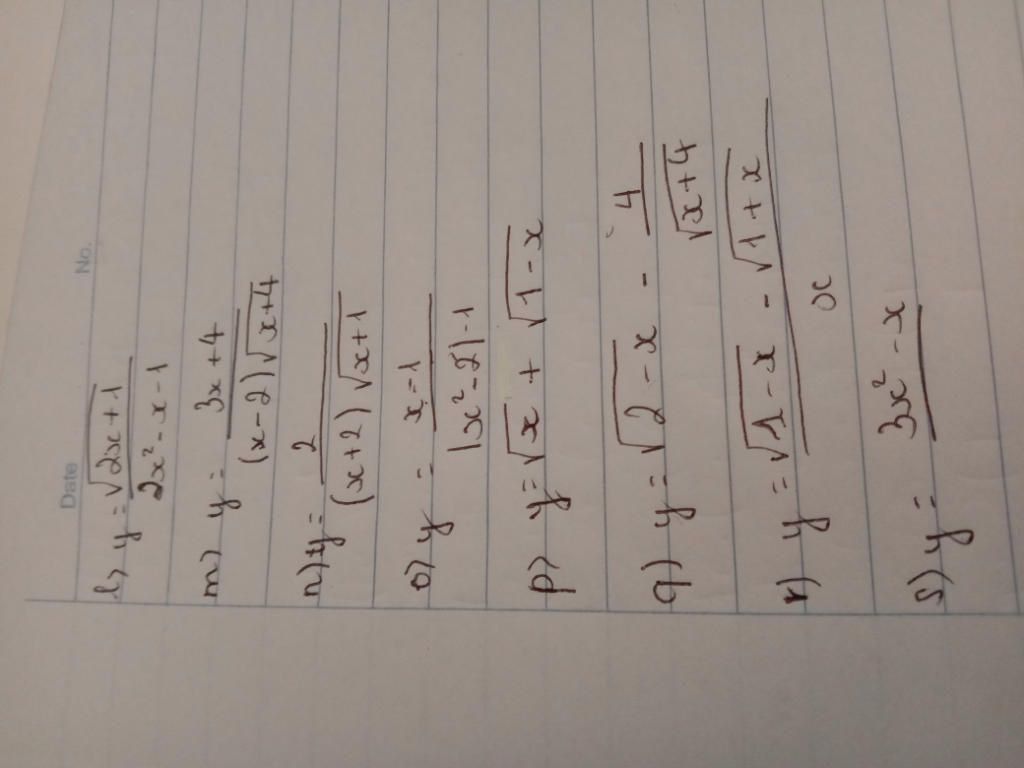 Date No.
l) y = √(2x+1) / (2x² - x - 1)
m) y = (3x+4) / ((x-2)√(x+4))
n) y = 2 / ((x+2)√(x+1))
o) y = (x-1) / (|x²-2|-1)
p) y = √x + √(1-x)
q) y = √(2-x) - 4/√(x+4)
r) y = (√(1-x) - √(1+x)) / x
s) y = (3x²-x) /